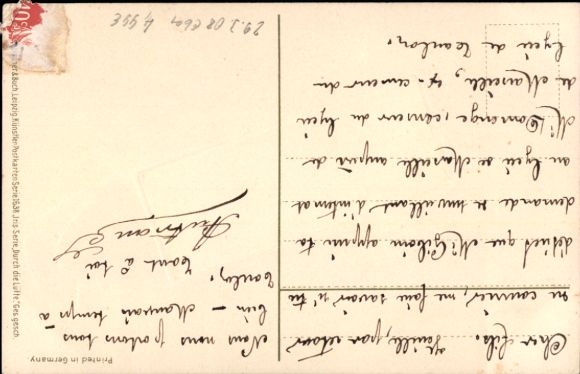 Cher Fils. Veuille, par retour
du courrier, me faire savoir si tu
désires que Mr Giboin appuie ta
demande de surveillant d'internat
au lycée de Marseille auprès de
Mr Domenge, censeur du lycée
de Marseille, ex-censeur du
lycée de Toulon.
Nous nous portons tous
bien - Mauvais temps à
Toulon.
Tout à toi
Printed in Germany
Leipzig. Künstler-Postkarten Serie 3638. Iris Serie „Durch die Lüfte“ Ges. gesch.
29.3.08